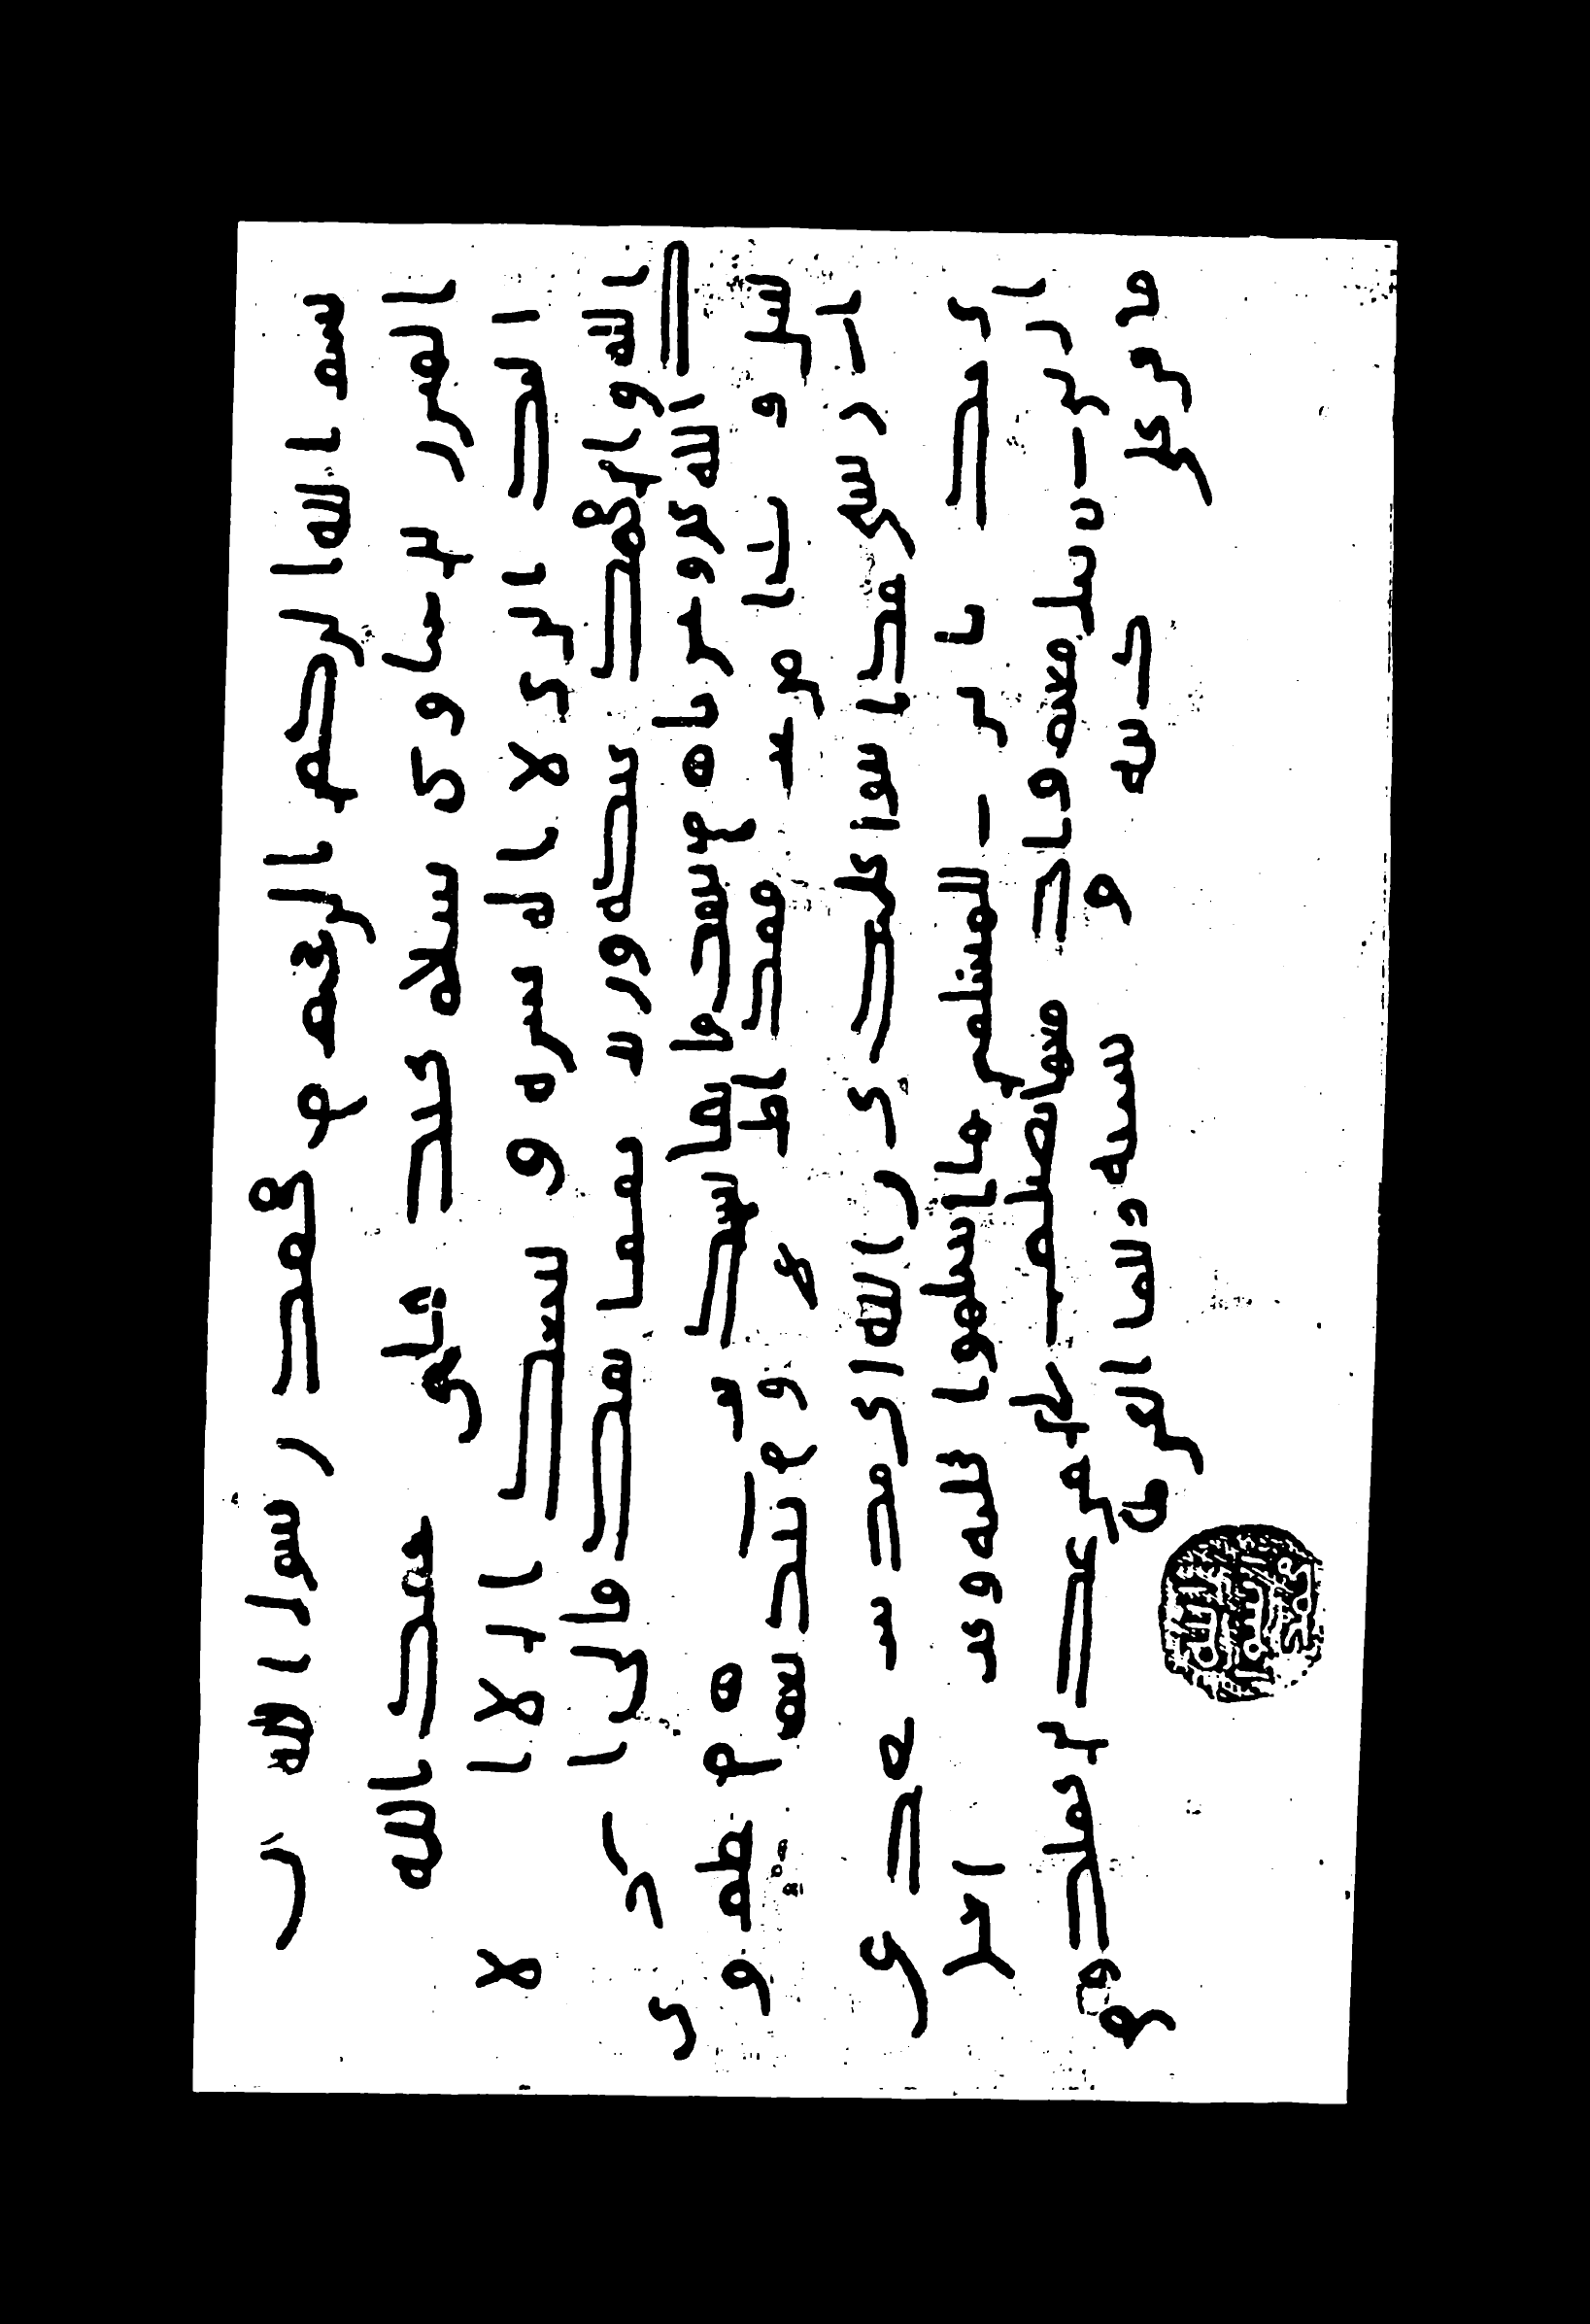 بسم الله الرحمن الرحيم من محمد رسول الله
المنذر بن ساوى سلام عليك فاني احمد الله
اليك الذي لا اله غيره واشهد ان لا
الله وان محمد عبده ورسوله اما بعد فاني اذكر
ك الله عز وجل فانه من ينصح فانما ينصح لنفسه وانه من يطع
رسلي ويتبع امرهم فقد اطاعني ومن نصح لهم
وان رسلي قد اثنوا عليك خيرا واني قد شفعتك في
قومك فاترك للمسلمين ما اسلموا عليه وعفوت عن اهل
الذنوب فاقبل منهم وانك مهما تصلح فلن نعزلك عن عملك ومن
اقام على يهوديته او مجوسيته فعليه الجزية
الله
رسول
محمد